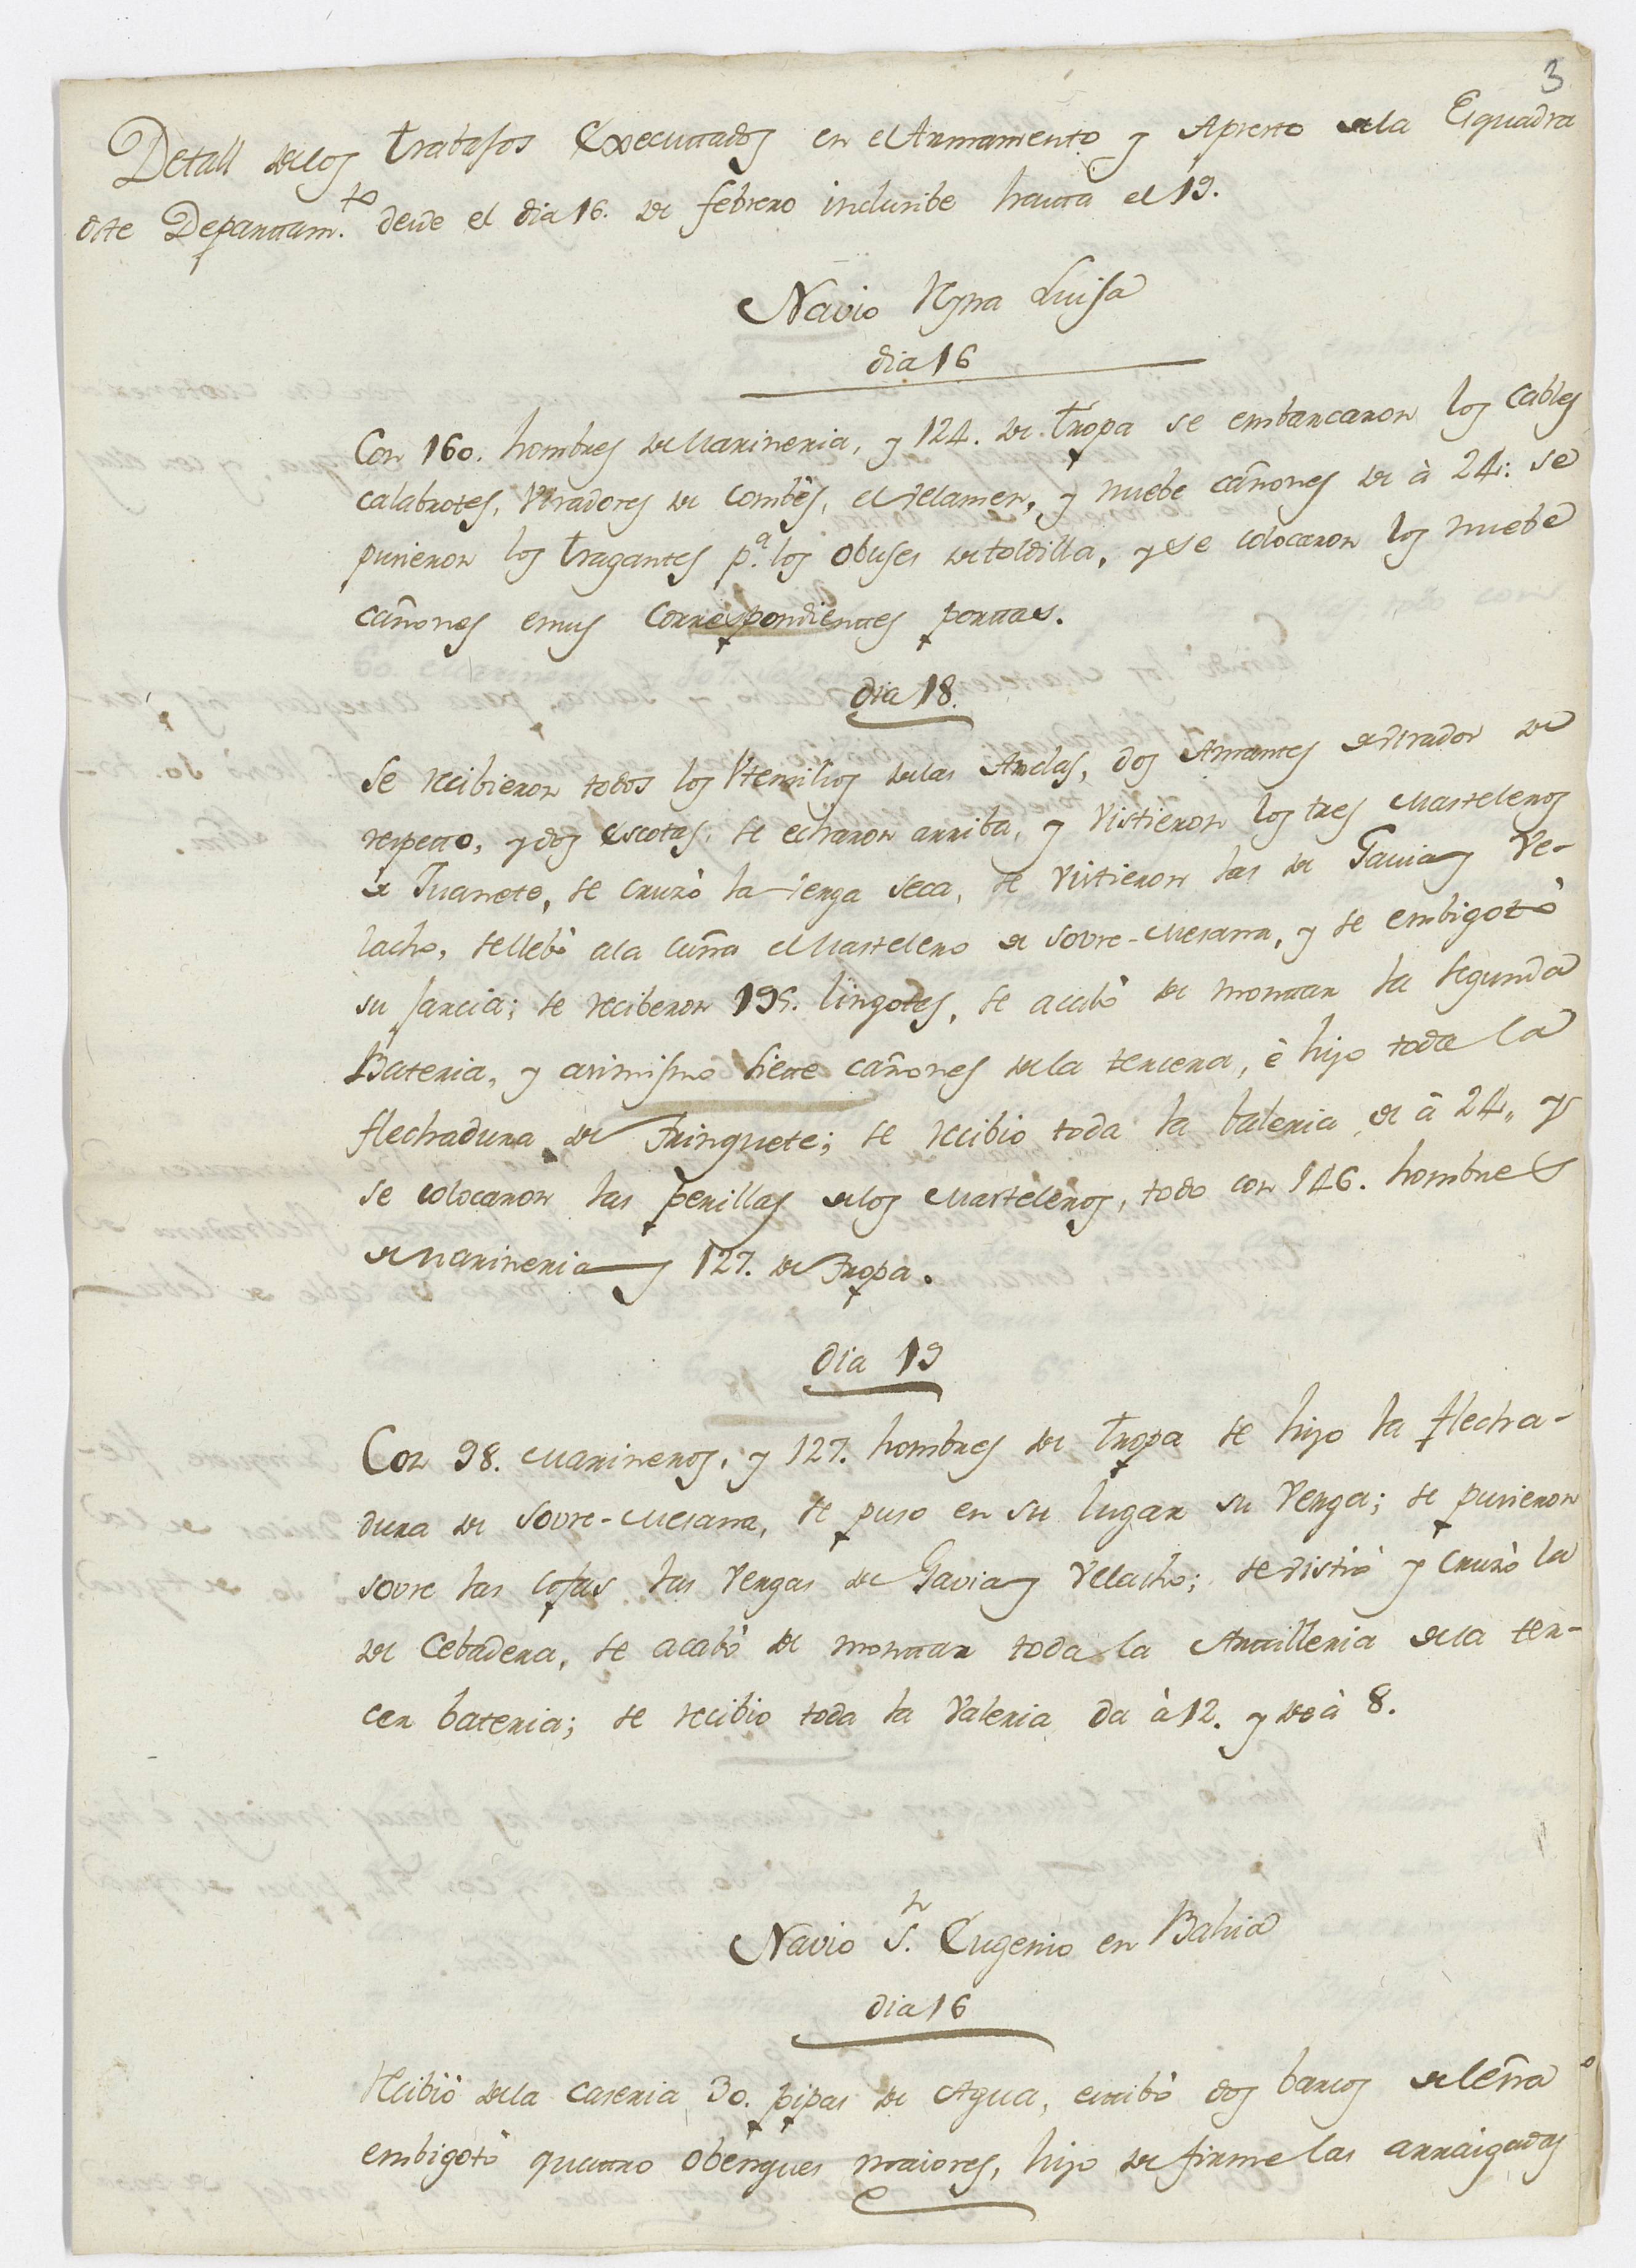 3
Detall de los trabajos Executados en el Armamento y Apresto de la Esquadra
de este Departam.to desde el dia 16. de febrero inclusibe hasta el 19.
Navio Reyna Luisa
dia 16
Con 160. hombres de Marineria, y 124. de tropa se embarcaron los Cables
calabrotes, Viradores de Combes, el velamen, y nuebe cañones de à 24: se
pusieron los tragantes p.a los obuses de toldilla, y se colocaron los nuebe
cañones en sus Correspondientes portas.
dia 18.
Se recibieron todos los Vtensilios de las Anclas, dos Amantes de virador de
respecto, y dos escotas, se echaron arriba, y Vistieron los tres Masteleros
de Juanete, se cruzò la verga seca, se vistieron las de Gavia y Ve-
lacho, se llebò a la cuña el Mastelero de sovre-Mesana, y se embigotò
su jarcia; se reciberon 195. lingotes, se acabò de montar la segunda
Bateria, y asimismo siete cañones de la tercera, è hizo toda la
flechadura de Trinquete; se recibio toda la baleria de à 24,, y
se colocaron las perillas de los Masteleros, todo con 146. hombres
de Marineria y 127. de Tropa.
dia 19
Con 98. Marineros, y 127. hombres de tropa se hizo la flecha-
dura de sovre-Mesana, se puso en su lugar su Verga; se pusieron
sovre las cofas las Vergas de Gavia y Velacho; se vistiò y Cruzò la
de Cebadera, se acabò de montar toda la Artilleria de la ter-
cer bateria; se recibio toda la Valeria da à 12. y de à 8.
Navio S.n Eugenio en Bahia
dia 16
Recibiò de la Caseria 30. pipas de Agua, estibò dos barcos de leña
embigotò quatro obenques maiores, hizo de firme las arraigadas